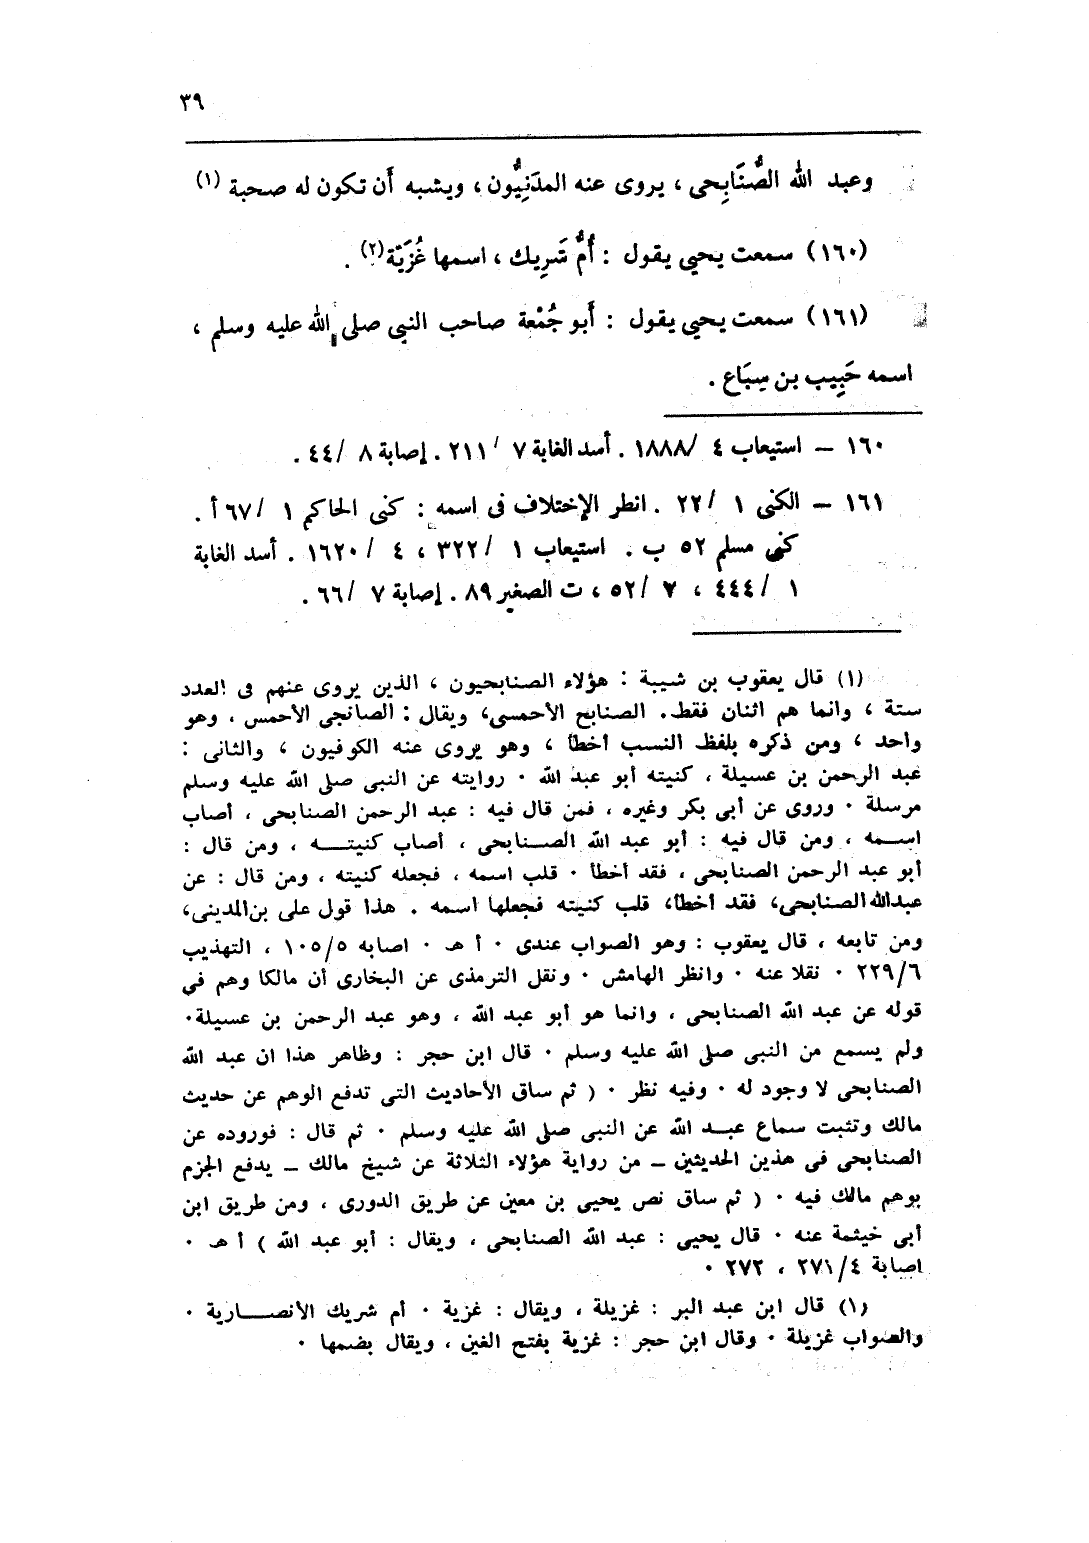 ٣٩
وعبد الله الصُّنَابِحى ، يروى عنه المدَنِيُّون ، ويشبه أَن تكون له صحبة (١)
(١٦٠) سمعت يحيى يقول : أُمُّ شَرِيك ، اسمها غُزَيَّة (٢) .
(١٦١) سمعت يحيى يقول : أَبو جُمْعة صاحب النبى صلى الله عليه وسلم ،
اسمه حَبِيب بن سِبَاع .
١٦٠ – استيعاب ٤ /١٨٨٨ . أسد الغابة ٧ /٢١١ . إصابة ٨ /٤٤ .
١٦١ – الكنى ١ /٢٢ . انطر الإختلاف فى اسمه : كنى الحاكم ١ /٦٧ أ .
كنى مسلم ٥٢ ب . استيعاب ١ /٣٢٢ ، ٤ /١٦٢٠ . أسد الغابة
١ /٤٤٤ ، ٧ /٥٢ ، ت الصغير ٨٩ . إصابة ٧ /٦٦ .
(١) قال يعقوب بن شيبة : هؤلاء الصنابحيون ، الذين يروى عنهم فى العدد
ستة ، وانما هم اثنان فقط. الصنابح الأحمسى، ويقال : الصانجى الأحمس ، وهو
واحد ، ومن ذكره بلفظ النسب أخطأ ، وهو يروى عنه الكوفيون ، والثانى :
عبد الرحمن بن عسيلة ، كنيته أبو عبد الله ٠ روايته عن النبى صلى الله عليه وسلم
مرسلة ٠ وروى عن أبى بكر وغيره ، فمن قال فيه : عبد الرحمن الصنابحى ، أصاب
اسـمه ، ومن قال فيه : أبو عبد الله الصـنابحى ، أصاب كنيتـه ، ومن قال :
أبو عبد الرحمن الصنابحى ، فقد أخطأ ٠ قلب اسمه ، فجعله كنيته ، ومن قال : عن
عبدالله الصنابحى، فقد أخطأ، قلب كنيته فجعلها اسمه . هذا قول على بن المدينى،
ومن تابعه ، قال يعقوب : وهو الصواب عندى ٠ أ هـ ٠ اصابه ١٠٥/٥ ، التهذيب
٢٢٩/٦ ٠ نقلا عنه ٠ وانظر الهامش ٠ ونقل الترمذى عن البخارى أن مالكا وهم في
قوله عن عبد الله الصنابحى ، وانما هو أبو عبد الله ، وهو عبد الرحمن بن عسيلة٠
ولم يسمع من النبى صلى الله عليه وسلم ٠ قال ابن حجر : وظاهر هذا ان عبد الله
الصنابحى لا وجود له ٠ وفيه نظر ٠ ( ثم ساق الأحاديث التى تدفع الوهم عن حديث
مالك وتثبت سماع عبـد الله عن النبى صلى الله عليه وسلم ٠ ثم قال : فوروده عن
الصنابحى فى هذين الحديثين – من رواية هؤلاء الثلاثة عن شيخ مالك – يدفع الجزم
بوهم مالك فيه ٠ ( ثم ساق نص يحيى بن معين عن طريق الدورى ، ومن طريق ابن
أبى خيثمة عنه ٠ قال يحيى : عبد الله الصنابحى ، ويقال : أبو عبد الله ) أ هـ ٠
اصابة ٢٧١/٤ ، ٢٧٢ ٠
(١) قال ابن عبد البر : غزيلة ، ويقال : غزية ٠ أم شريك الأنصـارية ٠
والصواب غزيلة ٠ وقال ابن حجر : غزية بفتح الغين ، ويقال بضمها ٠